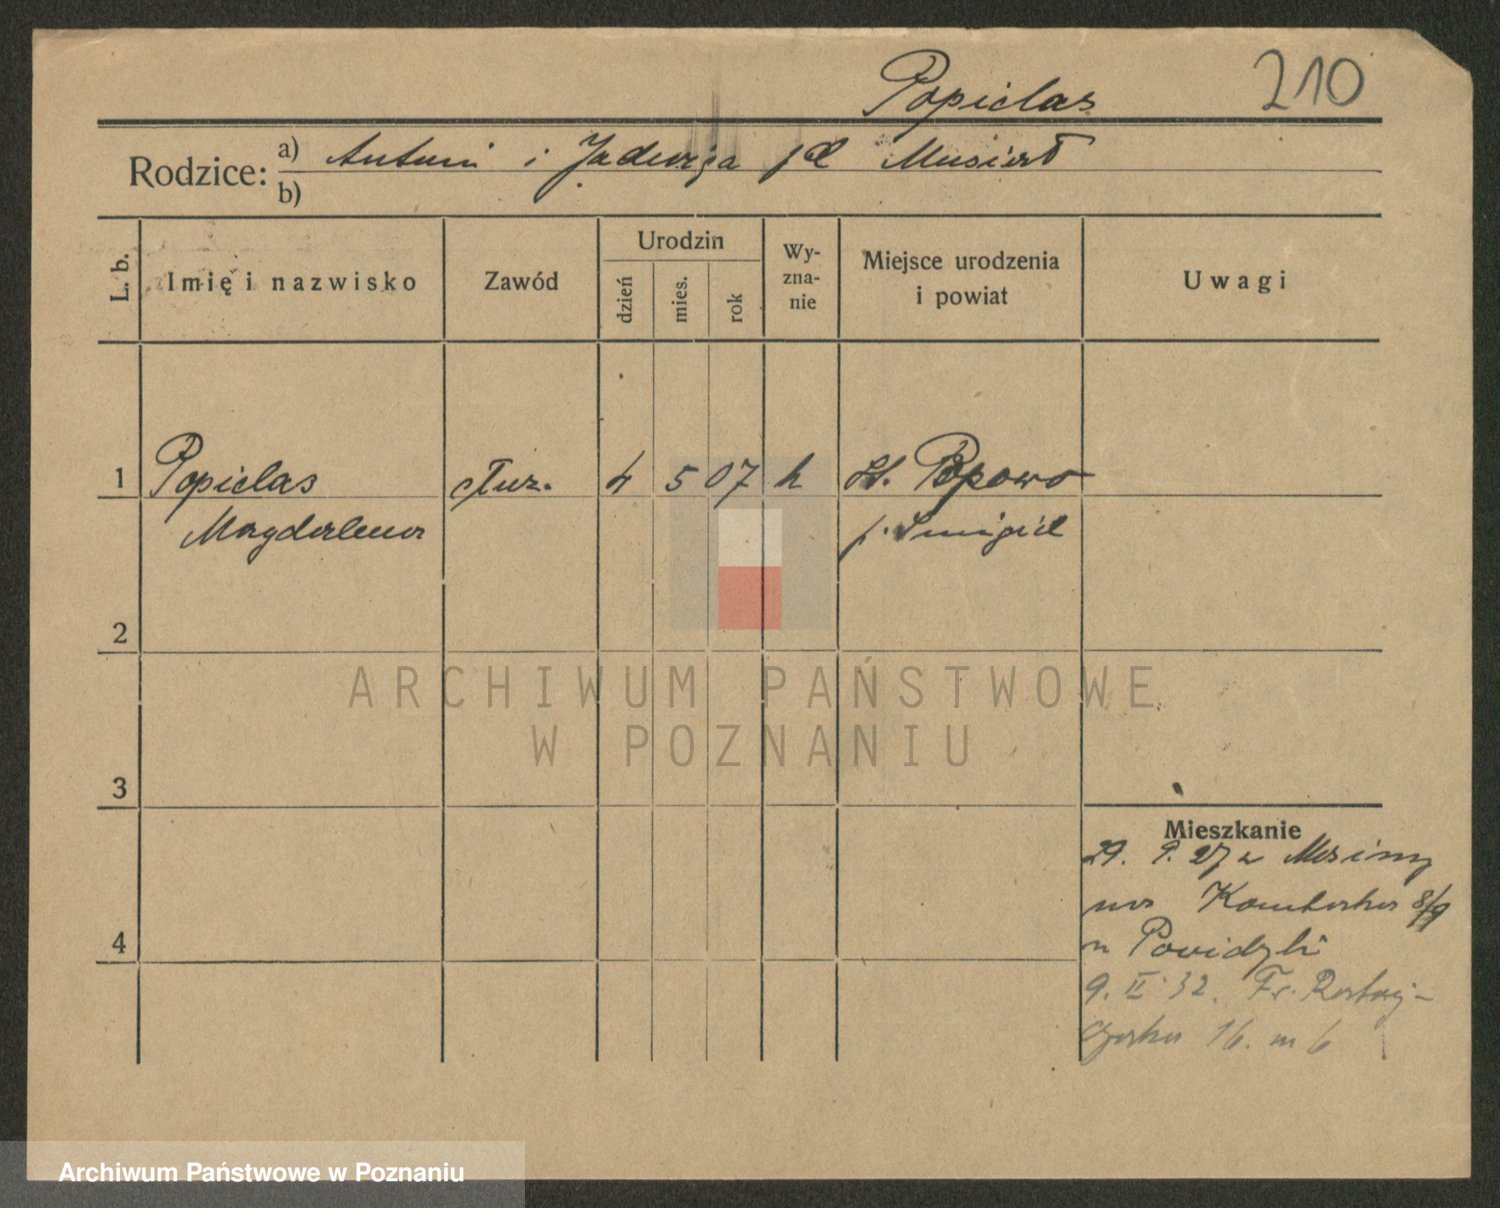 Popielas 210
Rodzice: a) Antoni i Jadwiga
b)
L. b. Imię i nazwisko Zawód Urodzin dzień mies. rok Wy-zna-nie Miejsce urodzenia i powiat Uwagi
1 Popielas służ. 4 5 07 k St. Popowo
Magdalena p. Śmigiel
2
3
4
Mieszkanie
29. 9. 27 z
na Kantaka 8/9
u
9. II 32. Fr. Rataj-
czaka 16. m 6
ARCHIWUM PAŃSTWOWE
W POZNANIU
Archiwum Państwowe w Poznaniu